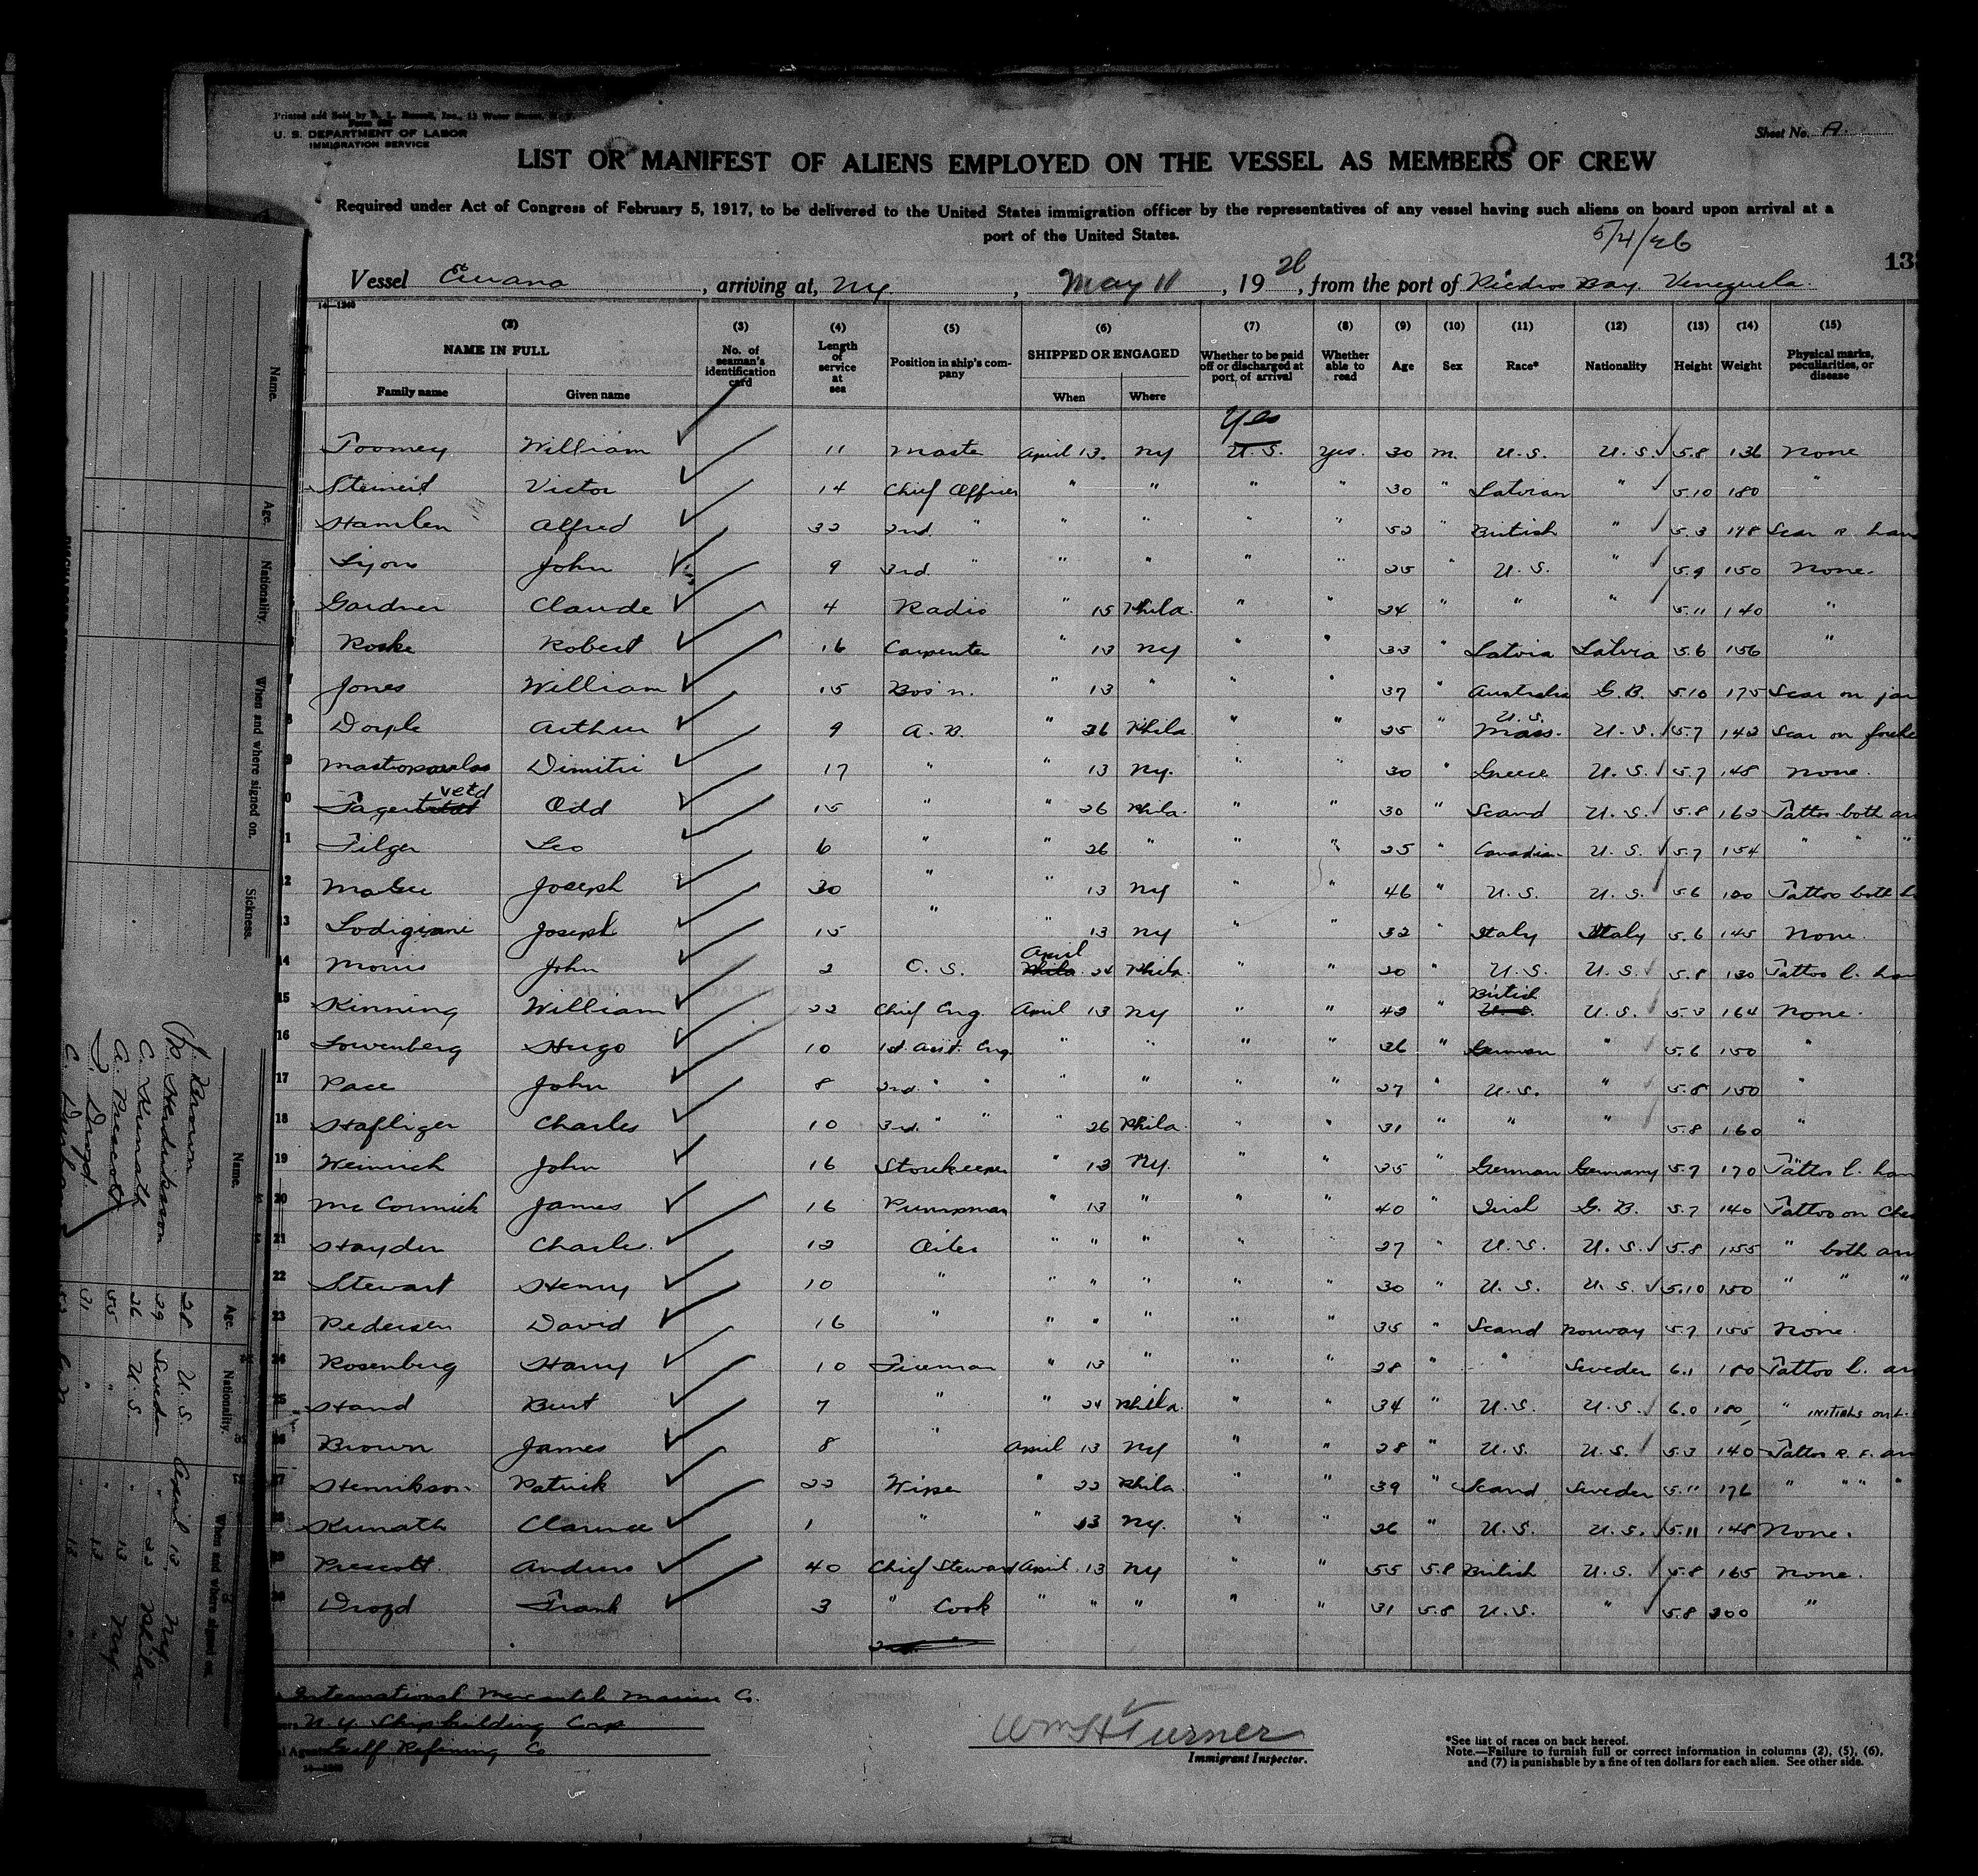 Printed and Sold by
U. S. DEPARTMENT OF LABOR
IMMIGRATION SERVICE
Sheet No. A.
LIST OR MANIFEST OF ALIENS EMPLOYED ON THE VESSEL AS MEMBERS OF CREW
Required under Act of Congress of February 5, 1917, to be delivered to the United States immigration officer by the representatives of any vessel having such aliens on board upon arrival at a
port of the United States.
5/4/26
Vessel , arriving at, NY , May 11 , 1926 , from the port of Bay Venezuela.
14—1240
(2) (3) (4) (5) (6) (7) (8) (9) (10) (11) (12) (13) (14) (15)
NAME IN FULL No. of seaman's identification card Length of service at sea Position in ship's company SHIPPED OR ENGAGED Whether to be paid off or discharged at port of arrival Whether able to read Age Sex Race* Nationality Height Weight Physical marks, peculiarities, or disease
Family name Given name When Where
Yes
Toomey William 11 Master April 13. NY U.S. Yes. 30 M. U.S. U.S. 5.8 136 None
Steinert Victor 14 Chief Officer " " " " 30 " Latvian " 5.10 180 "
Hamlen Alfred 32 2nd. " " " " " 52 " British " 5.3 178 Scar R han
Lyons John 9 3rd. " " " " " 25 " U.S. " 5.9 150 None.
Gardner Claude 4 Radio " 15 Phila. " " 24 " " " 5.11 140 "
Roske Robert 16 Carpenter " 13 NY " " 33 " Latvia Latvia 5.6 156 "
Jones William 15 Bos'n. " 13 " " " 37 " Australia G.B. 5.10 175 Scar on
U.S.
Arthur 9 A.B. " 26 Phila " " 25 " Mass. U.S. 5.7 142 Scar on
Dimitri 17 " " 13 NY. " " 30 " Greece U.S. 5.7 148 None.
vetd
Odd 15 " " 26 Phila. " " 30 " Scand U.S. 5.8 162 Tattoo both
Filger Leo 6 " " 26 " " " 25 " Canadian U.S. 5.7 154 " " "
McGee Joseph 30 " " 13 NY " " 46 " U.S. U.S. 5.6 Tattoo both
Lodigiani Joseph 15 " " 13 NY " " 32 " Italy Italy 5.6 145 None.
April
Morris John 2 O.S. Phila 24 Phila. " " 20 " U.S. U.S. 5.8 130 Tattoo L. han
British
Kinning William 22 Chief Eng. April 13 NY " " 42 " U.S. U.S. 5.3 164 None.
Lowenberg Hugo 10 1st. Asst. Eng " " " " 26 " German " 5.6 150 "
Pace John 8 2nd. " " " " " " 27 " U.S. " 5.8 150 "
Hafliger Charles 10 3rd. " " " 26 Phila. " " 31 " " " 5.8 160 "
Weinrich John 16 Storekeeper " 13 NY. " " 35 " German Germany 5.7 170 Tattoo L. han
McCormick James 16 Pumpman " 13 " " " 40 " Irish G.B. 5.7 140 Tattoo on Ches
Hayden Charles. 12 Oiler " " " " " 27 " U.S. U.S. 5.8 155 " both
Stewart Henry 10 " " " " " " 30 " U.S. U.S. 5.10 150 " " "
Pedersen David 16 " " " " " " 35 " Scand Norway 5.7 155 None.
Rosenberg Harry 10 Fireman " 13 " " " 28 " " Sweden 6.1 180 Tattoo L.
Hand Burt 7 " " 24 Phila. " " 34 " U.S. U.S. 6.0 180 " INITIALS on L.
Brown James 8 " April 13 NY " " 28 " U.S. U.S. 5.3 140 Tattoo R. F.
Henrikson Patrick 22 Wiper " 22 Phila. " " 39 " Scand Sweden 5.11 176 " " " "
Kunath Clarence 1 " " 13 NY. " " 26 " U.S. U.S. 5.11 148 None.
Prescott. Andrew 40 Chief Steward April 13 NY " " 55 5.8 British U.S. 5.8 165 None.
Drozd Frank 3 " Cook " " " " " 31 5.8 U.S. " 5.8 200 "
International Mercantile Marine Co.
N.Y. Shipbuilding Corp
Gulf Refining Co
Wm H Turner
Immigrant Inspector.
*See list of races on back hereof.
Note.—Failure to furnish full or correct information in columns (2), (5), (6),
and (7) is punishable by a fine of ten dollars for each alien. See other side.
Name. Age. Nationality. When and where signed on. Sickness.
Name. Age. Nationality. When and where signed on.
J. Brown 28 U.S. April 13. NY
P. Hendrikson 39 Sweden " 22 Phila
C. Kunath 26 U.S. " 13 NY
A. Prescott 55 " " 13 "
Drozd 31 " " 13 "